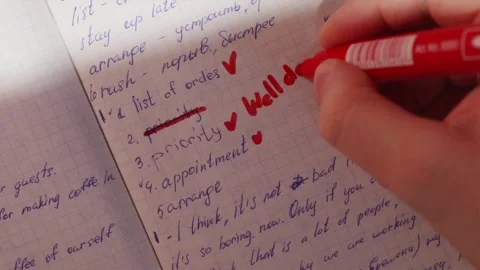 list -
stay up late
arrange - устроить,
rush - порыв, быстрее
1. a list of ordes
2. priority
3. priority Well d
4. appointment
5. arrange
1 - I think, it's not bad
it's so boring now. Only if you
that is a lot of people,
by we are working
r guests.
for making coffee in
ffee of ourself